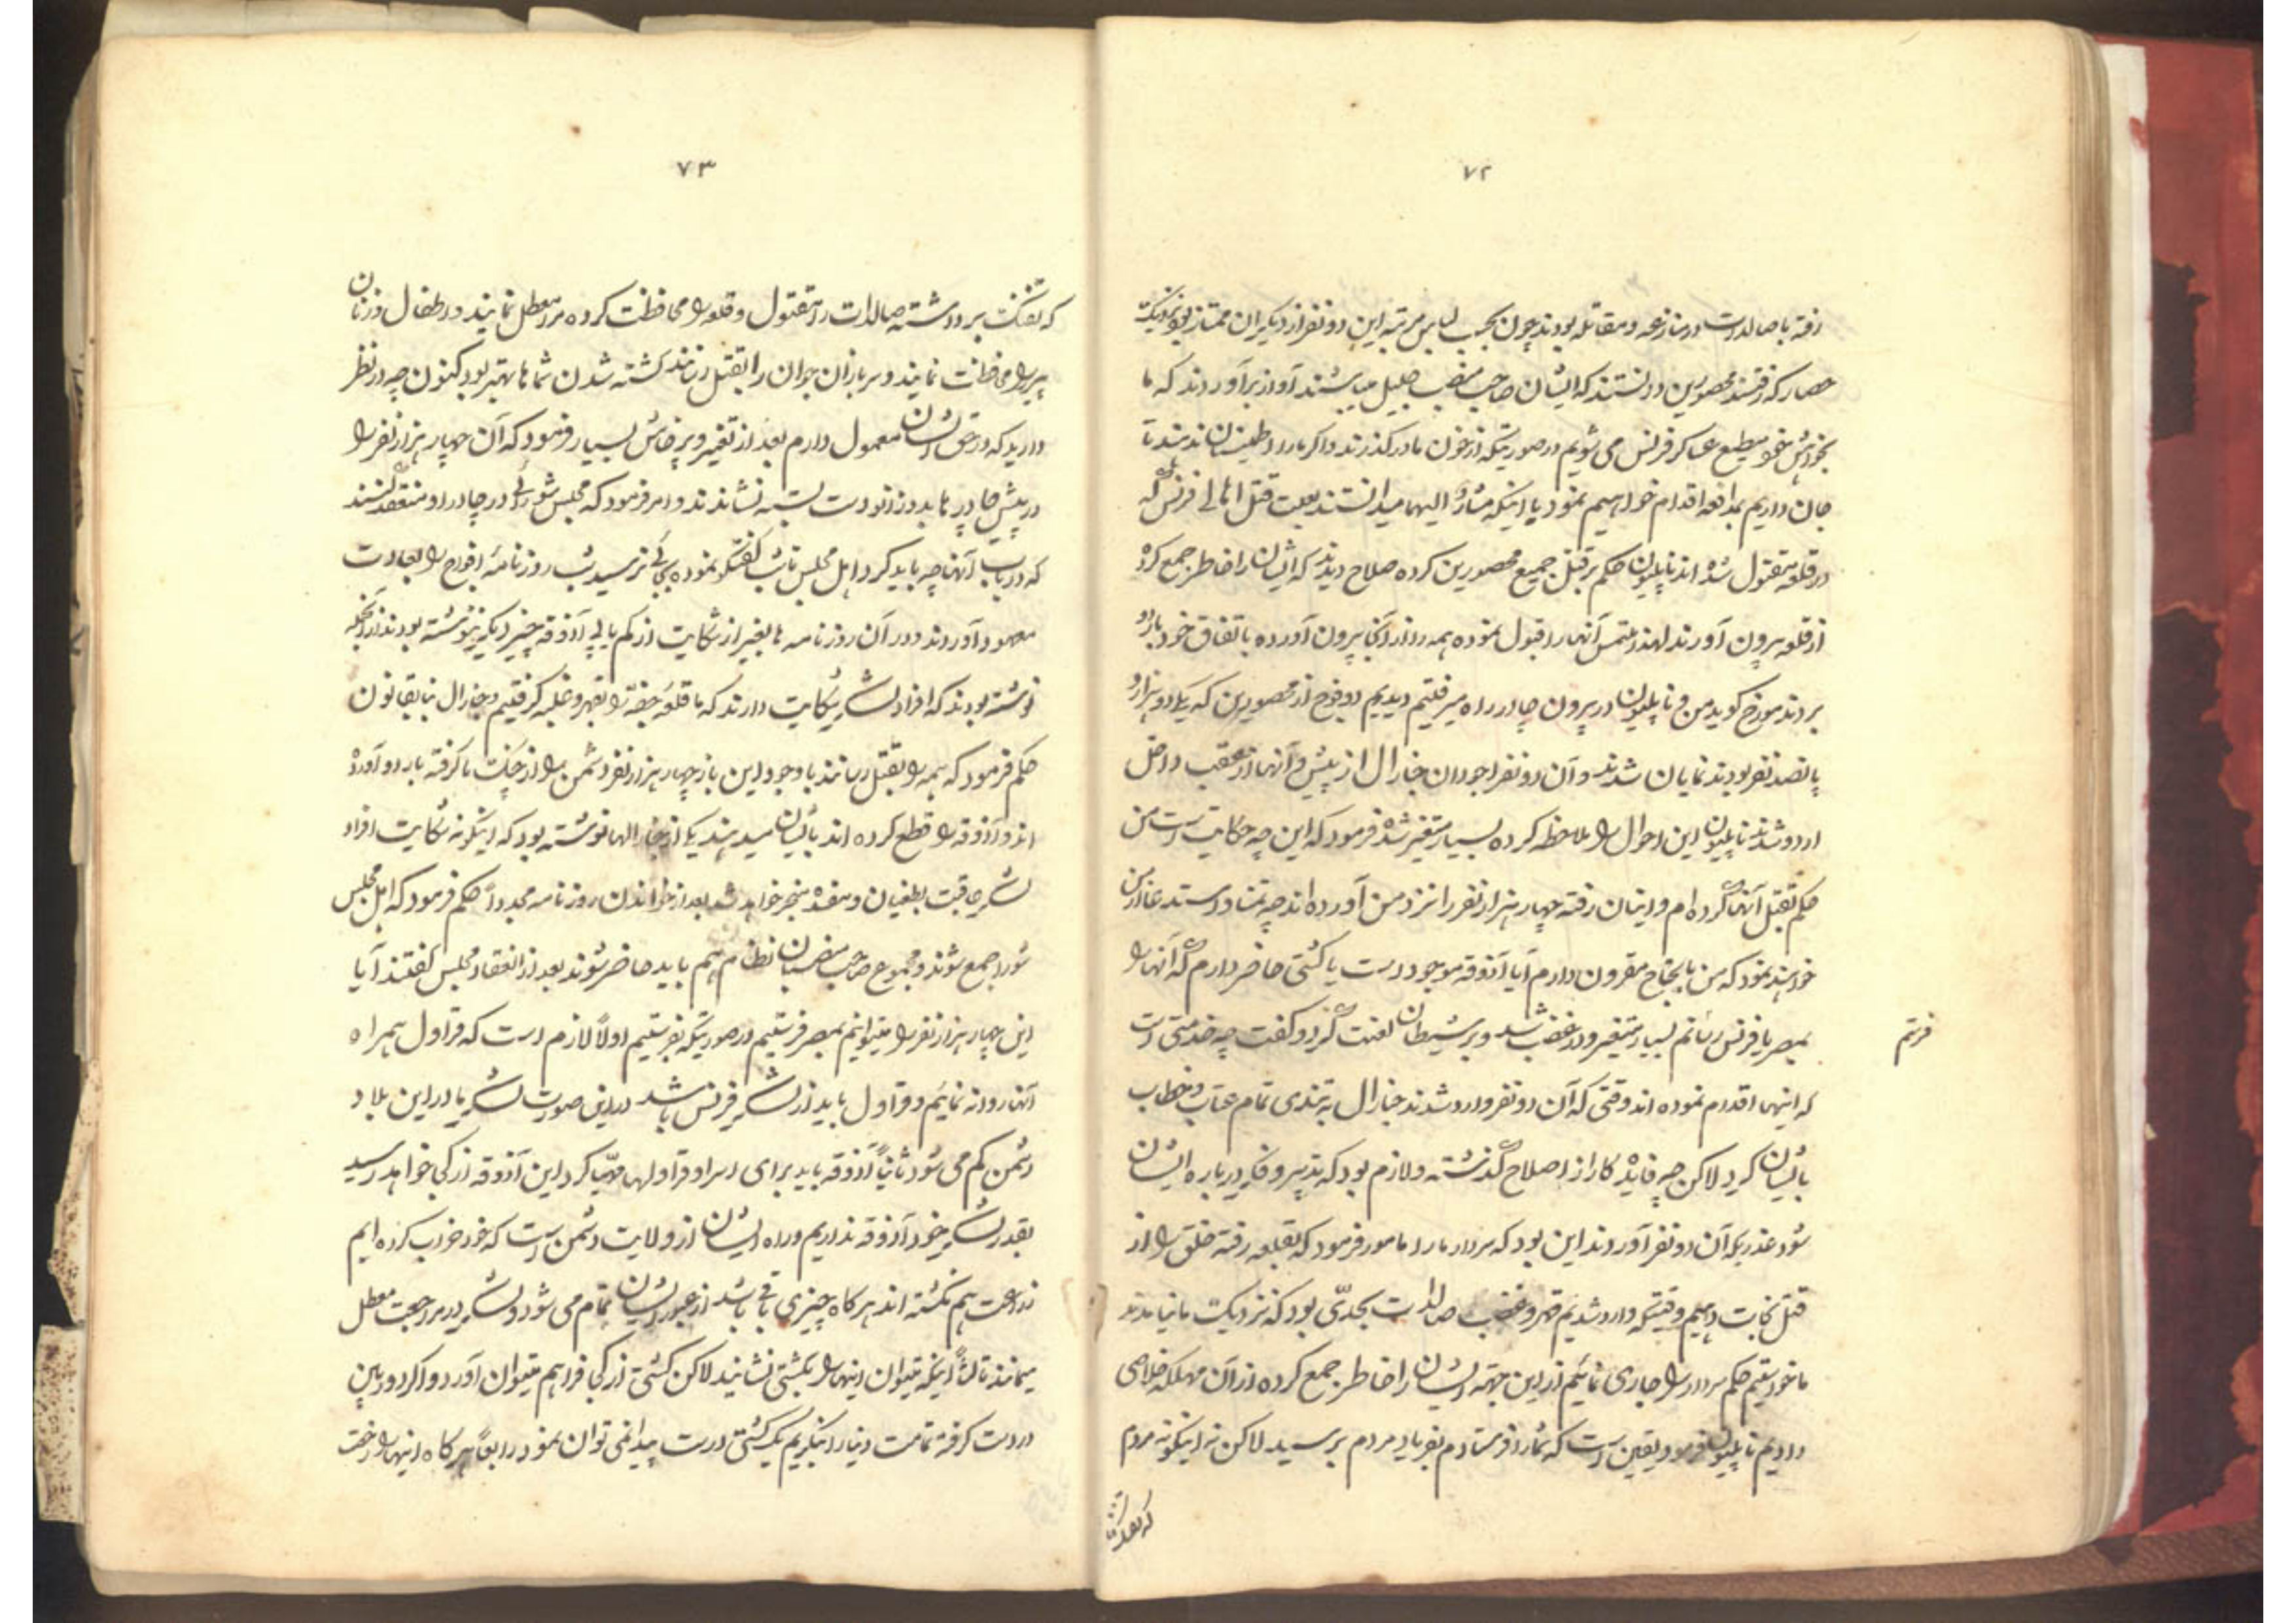 ۷۲
رفته با صالدات در منازعه و مقاتله بودند چون بحسب لباس مرتبه این دو نفر از دیکران ممتاز بود بنزدیک
حصار که رفتند محصورین دانستند که ایشان صاحب منصب جلیل میباشند آواز برآوردند که ما
بخواهش خود مطیع عساکر فرانس می شویم در صورتیکه از خون ما درگذرند و اکر ما را اطمینان ندهند تا
جان داریم بمدافعه اقدام خواهیم نمود با اینکه مشار الیهما میدانستند بعلت قتل اهالی فرانس که
در قلعه مقتول شده اند ناپلیون حکم بر قتل جمیع محصورین کرده صلاح دیدند که ایشان را خاطر جمع کرده
از قلعه بیرون آورند لهذا ملتمس آنها را قبول نموده همه را از آنجا بیرون آورده باتفاق خود باردو
بردند مورخ کوید من و ناپلیون در بیرون چادر راه میرفتیم دیدیم دو فوج از محصورین که یکی دو هزار و
پانصد نفر بودند نمایان شدند و آن دو نفر اجودان جنارال از پیش و آنها از عقب داخل
اردو شدند ناپلیون این احوال را ملاحظه کرده بسیار متغیر شده فرمود که این چه حکایت است من
حکم بقتل آنها کرده ام و اینان رفته چهار هزار نفر را نزد من آورده اند چه تمنا داستدعا از من
خواهند نمود که من بانجاح مقرون دارم آیا آذوقه موجود است یا کشتی حاضر دارم که آنها را
بمصر یا فرانس رسانم بسیار متغیر و در غضب شد و بر شیطان لعنت کرد و کفت چه خدمتی است
فرستم
که اینها اقدام نموده اند وقتی که آن دو نفر وارد شدند جنارال به تندی تمام عتاب و خطاب
بایشان کرد لاکن چه فایده کار از اصلاح گذشته و لازم بود که تدبیر و فکری درباره ایشان
شود عذریکه آن دو نفر آوردند این بود که سردار ما را مامور فرمود که بقلعه رفته خلق را از
قتل نجات دهیم وقتیکه وارد شدیم قهر و غضب صالدات بحدّی بود که نزدیک ما نیامدند
ما خواستیم حکم سردار را جاری نمائیم از این جهته ایشان را خاطر جمع کرده از آن مهلکه خلاصی
دادیم ناپلیون فرمود یقین است که شما را فرستادم بفریاد مردم برسید لاکن نه اینکونه مردم
که تفنک
۷۳
که تفنک برداشته صالدات را مقتول و قلعه را محافظت کرده مرا معطل نمایند و اطفال و زنان
پیر را محافظت نمایند و سربازان جوان را بقتل رسانند کشته شدن شماها بهتر بود کنون چه در نظر
دارید که در حق ایشان معمول دارم بعد از تغییر و پرخاش بسیار فرمود که آن چهار هزار نفر را
در پیش چادرها بدو زانو دست بسته نشاندند و امر فرمود که مجلس شورائی در چادر او منعقد کنند
که در باب آنها چه باید کرد اهل مجلس تا شب کفتکو نموده بجائی نرسید شب روزنامه افواج را بعادت
معهود آوردند در آن روزنامه ها بغیر از شکایت از کم یابی آذوقه چیز دیکر ننوشته بودند از آنجمله
نوشته بودند که افراد لشکر شکایت دارند که ما قلعه جفّه را بقهر و غلبه کرفتیم و جنارال بنا بقانون
حکم فرمود که همه را بقتل رسانند با وجود این باز چهار هزار نفر دشمن را از چنک ما کرفته باردو آورده
اند و آذوقه را قطع کرده اند بایشان میدهند یکی از جنارالها نوشته بود که اینکونه شکایت افراد
لشکر عاقبت بطغیان و مفسده منجر خواهد شد بعد از خواندن روزنامه مجدداً حکم فرمود که اهل مجلس
شورا جمع شوند و مجموع صاحب منصبان نظام هم باید حاضر شوند بعد از انعقاد مجلس کفتند آیا
این چهار هزار نفر را میتوانیم بمصر فرستیم در صورتیکه بفرستیم اولاً لازم است که قراول همراه
آنها روانه نمائیم و قراول باید از لشکر فرانس باشد در این صورت لشکر ما در این بلاد
دشمن کم می شود ثانیاً آذوقه باید برای اسرا و قراولها مهیّا کرد این آذوقه از کجا خواهد رسید
بقدر لشکر خود آذوقه نداریم و راه ایشان از ولایت دشمن است که خود خراب کرده ایم
زراعت هم نکشته اند هر کاه چیزی باقی باشد از عبور ایشان تمام می شود و لشکر در مراجعت معطل
میمانند ثالثاً اینکه میتوان اینها را بکشتی نشانید لاکن کشتی از کجا فراهم میتوان آورد و اکر دوربین
در دست کرفته تمامت دنیا را بنکریم یک کشتی درست پیدا نمی توان نمود رابعاً هر کاه اینها را رخت